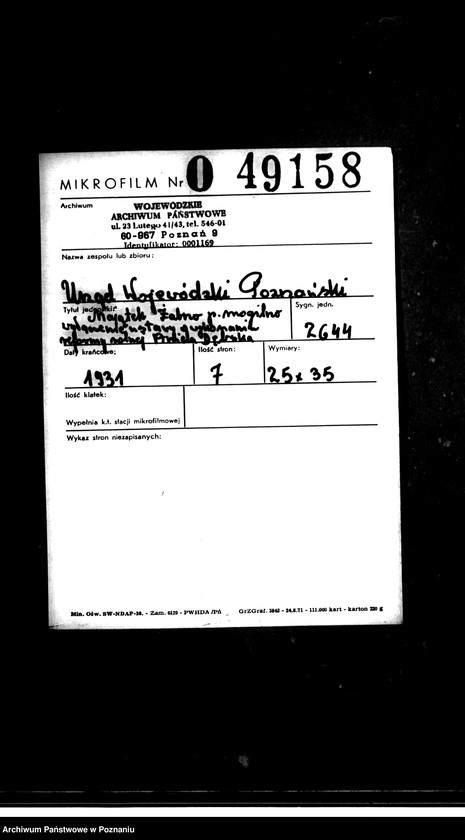 MIKROFILM Nr 0 49158
Archiwum
WOJEWÓDZKIE
ARCHIWUM PAŃSTWOWE
ul. 23 Lutego 41/43, tel. 546-01
60-967 Poznań 9
Identyfikator: 0001169
Nazwa zespołu lub zbioru:
Urząd Wojewódzki Poznański
Tytuł jednostki:
Sygn. jedn.
Majątek Żalno p. mogilno
ustawy o wykonaniu
reformy rolnej
2644
Daty krańcowe:
Ilość stron:
Wymiary:
1931
7
25x35
Ilość klatek:
Wypełnia k.t. stacji mikrofilmowej
Wykaz stron niezapisanych:
Min. Ośw. SW-NDAP-36. - Zam. 6129 - PWHDA /Pń
GrZGraf. 3843 - 24.8.71 - 111.000 kart - karton 220 g
Archiwum Państwowe w Poznaniu